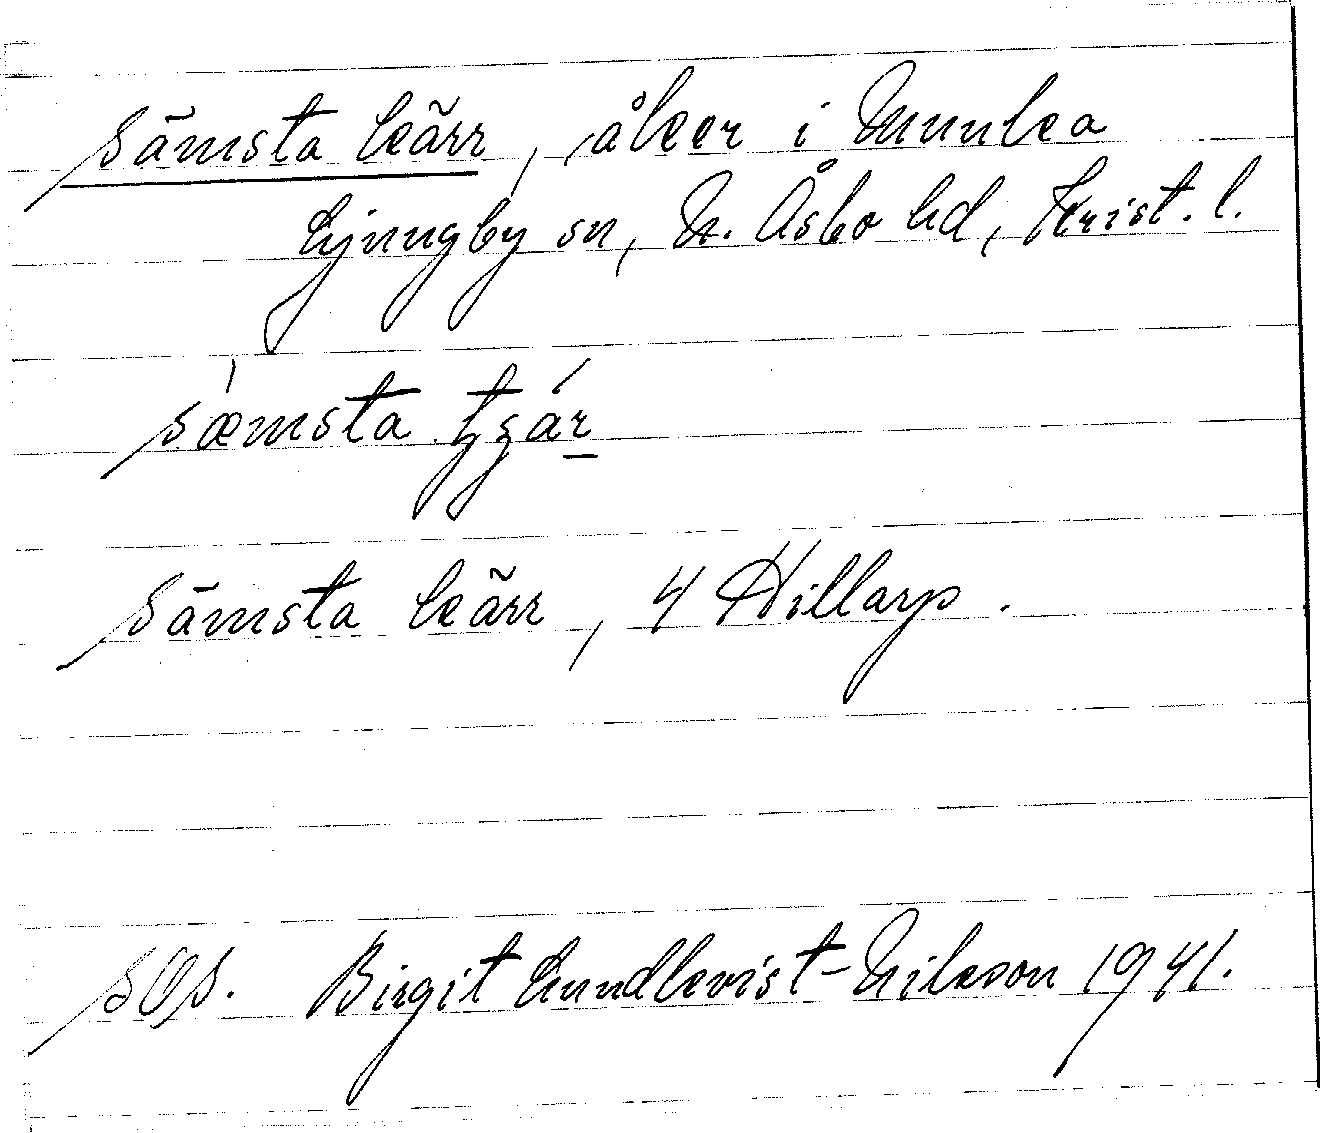 Sämsta kärr, åker i Munka
Ljungby sn, N. Åsbo hd, Krist. l.
sæ̍msta tʒár
Sämsta kärr, 4 Hillarp.
SOS. Birgit Lundkvist-Nilsson 1941.